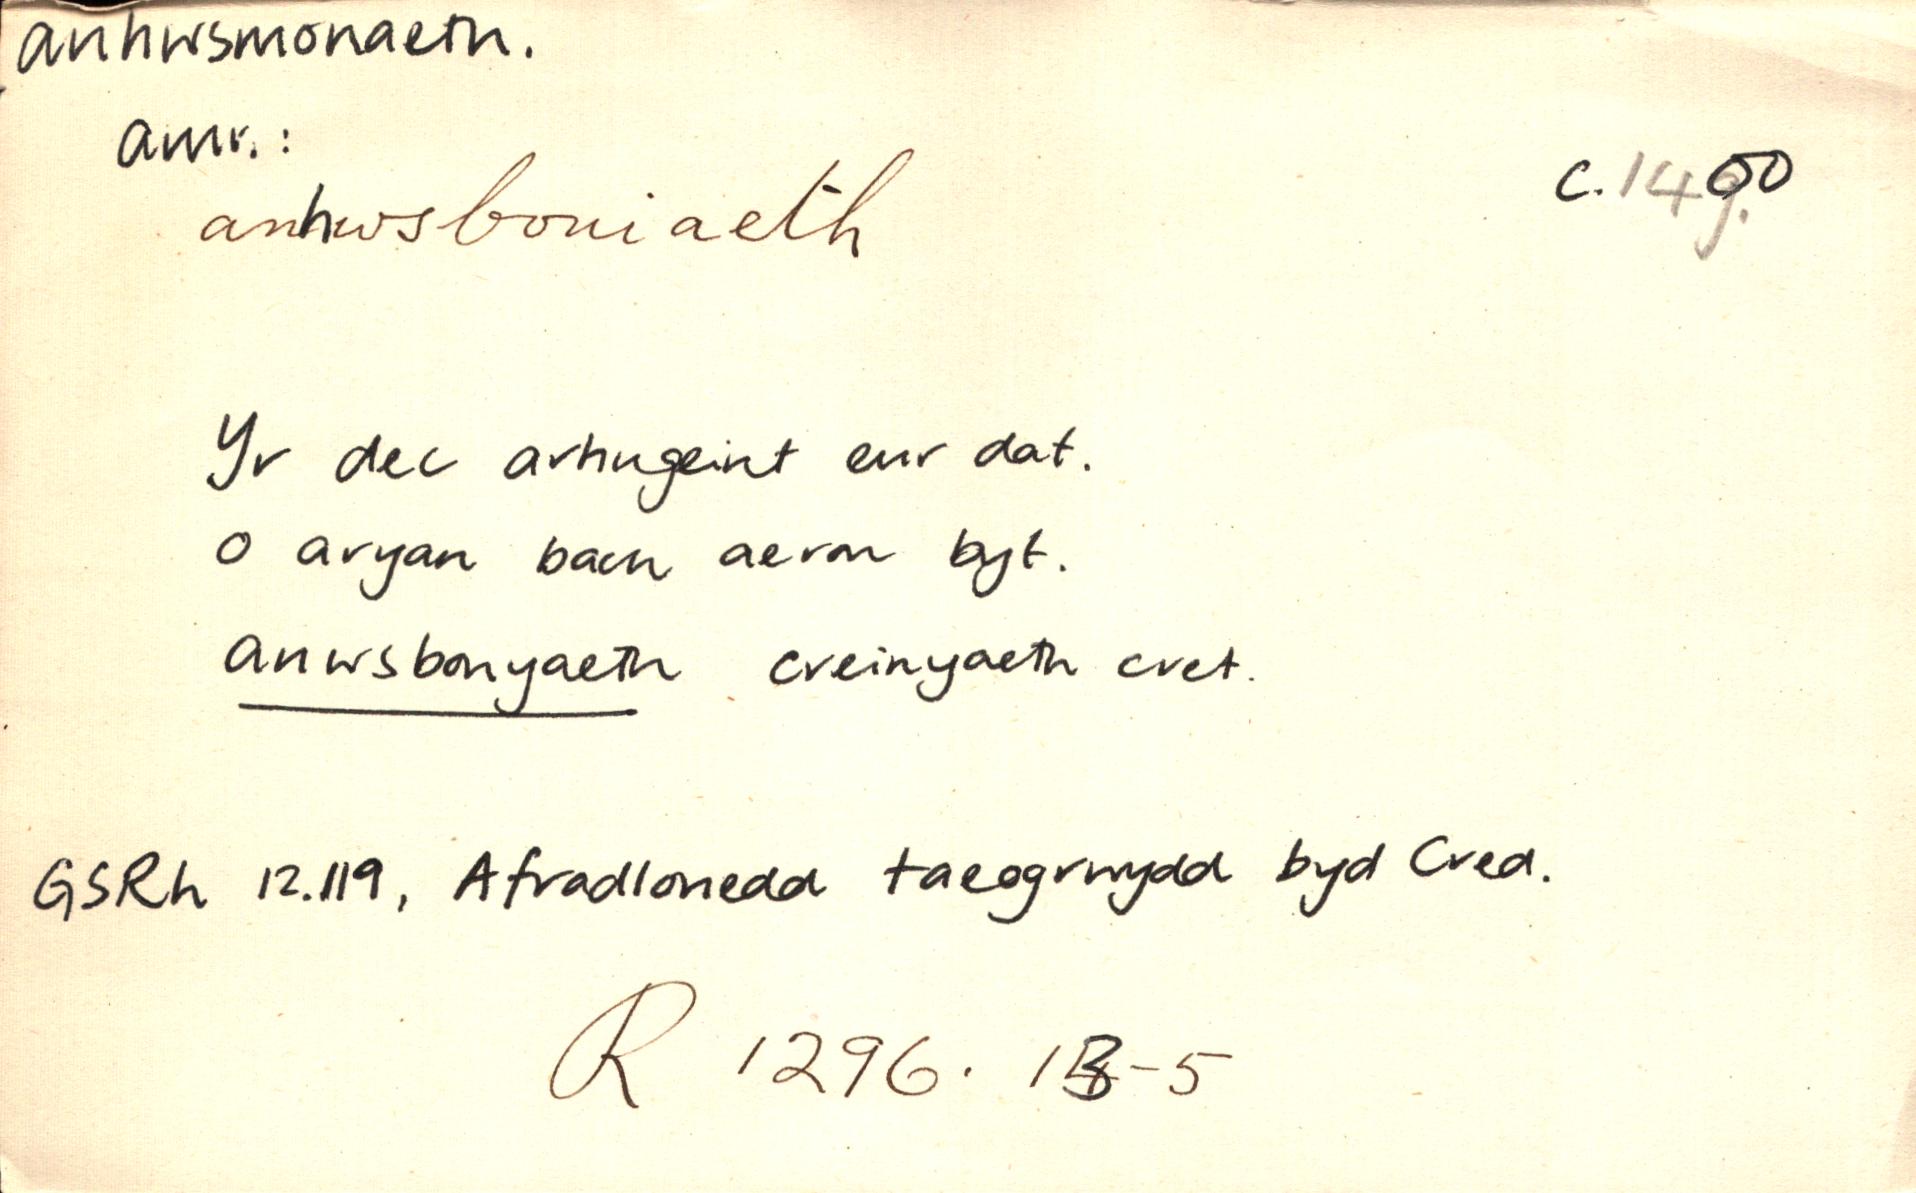 anhwsmonaeth.
amr.:
c. 1400
anhwsboniaeth
Yr dec arhugeint eur dat.
o aryan bacn aeron byt.
anwsbonyaeth creinyaeth cret.
GSRh 12.119, Afradlonedd taeogrwydd byd Cred.
R 1296. 13-5